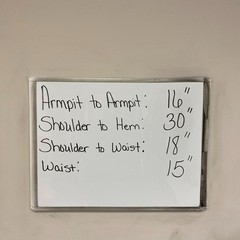 Armpit to Armpit: 16"
Shoulder to Hem: 30"
Shoulder to Waist: 18"
Waist: 15"